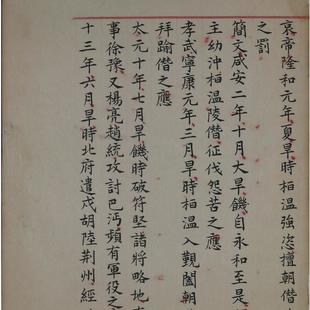 哀帝隆和元年夏旱時桓温強恣擅朝僭
之罰
簡文咸安二年十月大旱饑自永和至是
主幼沖桓温陵僭征伐怨苦之應
孝武寧康元年三月旱時桓温入覲闔朝
拜踰僭之應
太元十年七月旱饑時破苻堅諸將略地
事徐豫又楊亮趙統攻討巴沔頻有軍役之
十三年六月旱時北府遣戍胡陸荆州經